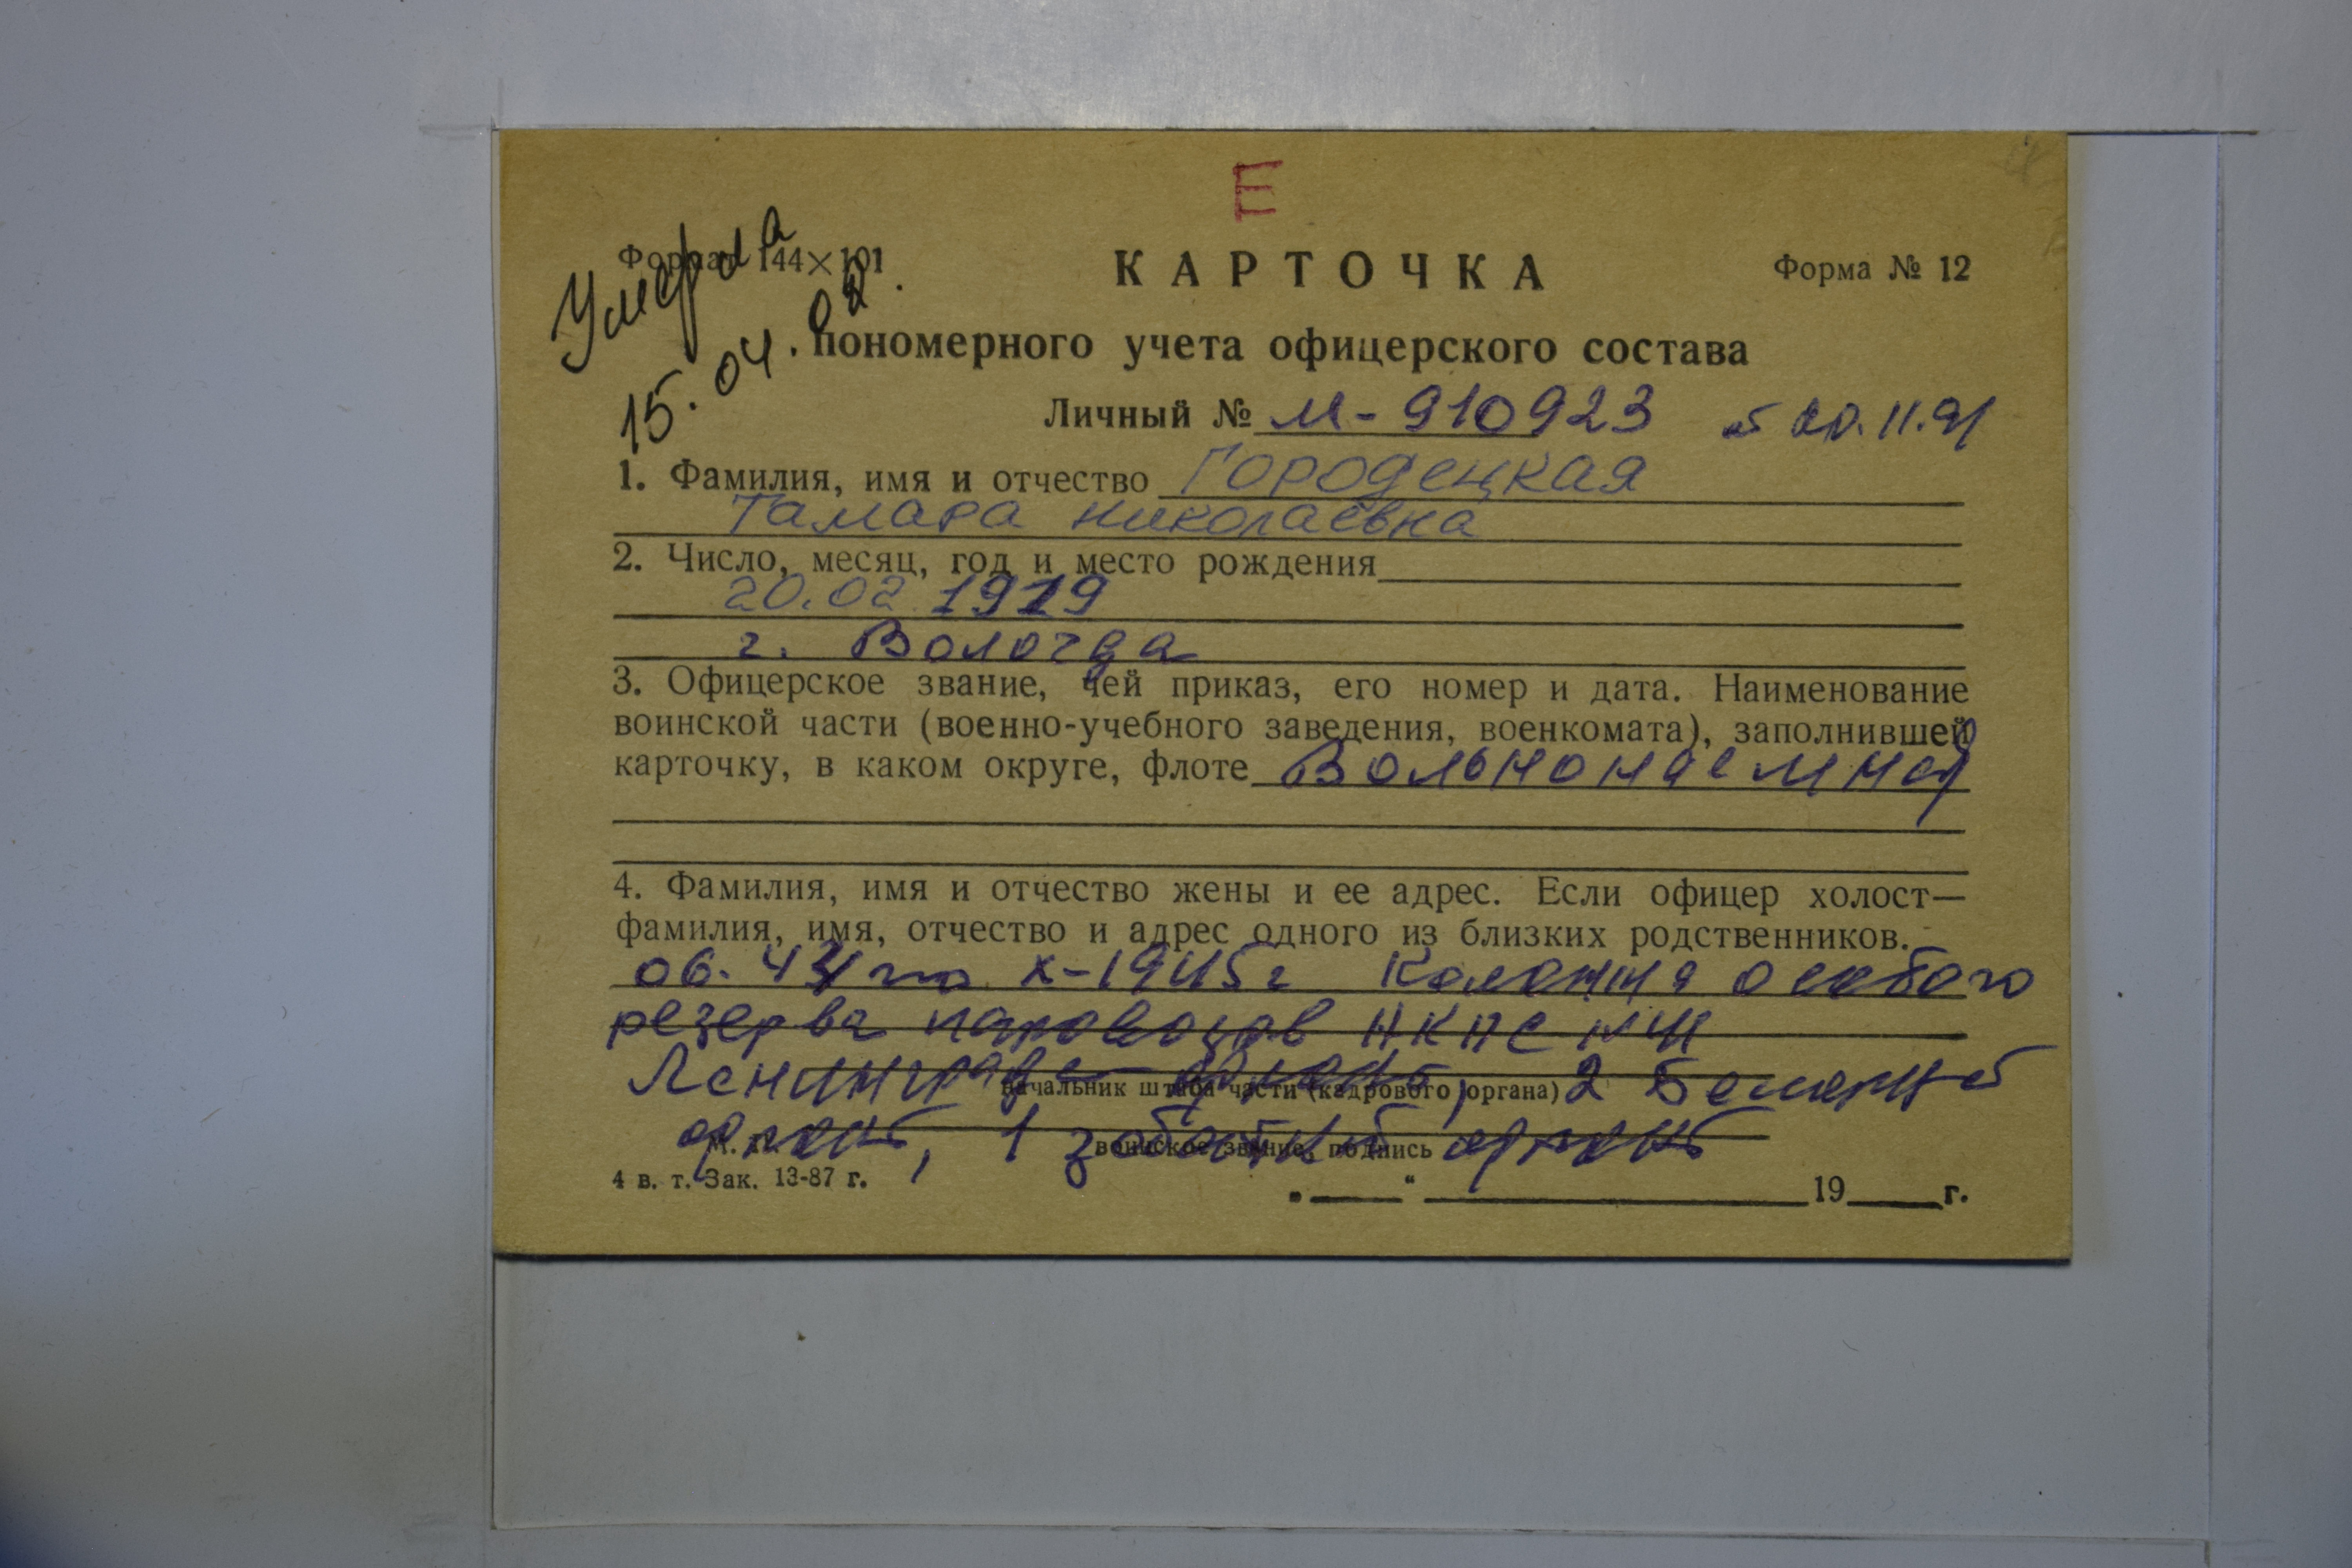 Е
Умерла
15.04.02.
Формат 144×101
КАРТОЧКА
Форма № 12
пономерного учета офицерского состава
Личный № М-910923 20.11.91
1. Фамилия, имя и отчество Городецкая
Тамара Николаевна
2. Число, месяц, год и место рождения
20.02 1919
г. Вологда
3. Офицерское звание, чей приказ, его номер и дата. Наименование
воинской части (военно-учебного заведения, военкомата), заполнившей
карточку, в каком округе, флоте Вольнонаемная
4. Фамилия, имя и отчество жены и ее адрес. Если офицер холост—
фамилия, имя, отчество и адрес одного из близких родственников.
06. по X-1945г Колонна особого
резерва паровозов НКПС
Ленинград фронт, 2 Белорус
начальник штаба части (кадрового органа)
фронт, 1 фронт
воинское звание, подпись
М. П.
4 в. т. Зак. 13-87 г.
„ “ 19 г.